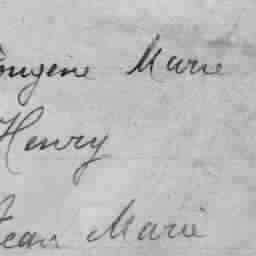 Eugène Marie
Henry
Jean Marie